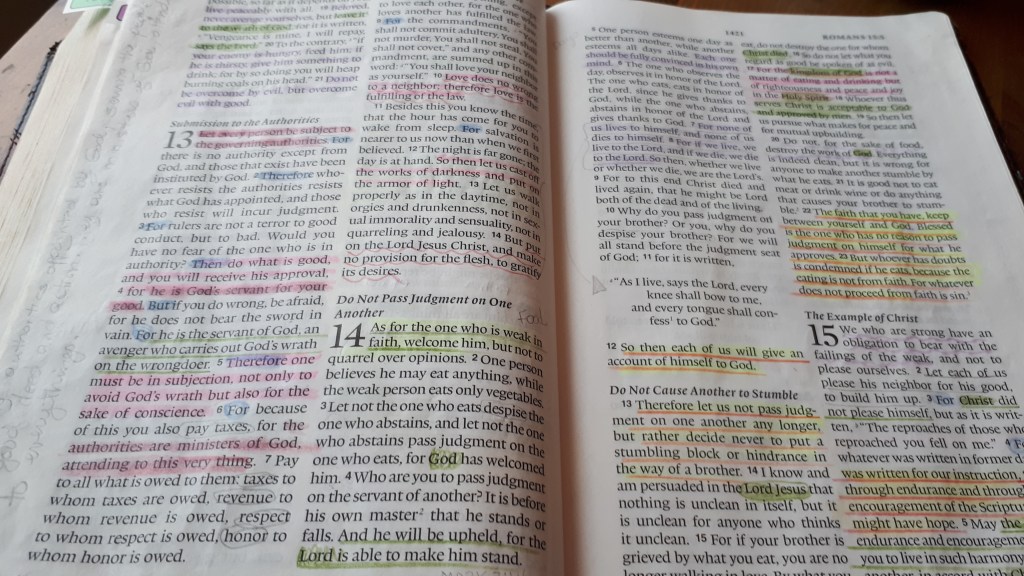 live peaceably with all. 19 Beloved,
never avenge yourselves, but leave it
to the wrath of God, for it is written,
"Vengeance is mine, I will repay,
says the Lord." 20 To the contrary, "if
your enemy is hungry, feed him; if
he is thirsty, give him something to
drink; for by so doing you will heap
burning coals on his head." 21 Do not
be overcome by evil, but overcome
evil with good.
Submission to the Authorities
13 Let every person be subject to
the governing authorities. For
there is no authority except from
God, and those that exist have been
instituted by God. 2 Therefore who-
ever resists the authorities resists
what God has appointed, and those
who resist will incur judgment.
3 For rulers are not a terror to good
conduct, but to bad. Would you
have no fear of the one who is in
authority? Then do what is good,
and you will receive his approval,
4 for he is God's servant for your
good. But if you do wrong, be afraid,
for he does not bear the sword in
vain. For he is the servant of God, an
avenger who carries out God's wrath
on the wrongdoer. 5 Therefore one
must be in subjection, not only to
avoid God's wrath but also for the
sake of conscience. 6 For because
of this you also pay taxes, for the
authorities are ministers of God,
attending to this very thing. 7 Pay
to all what is owed to them: taxes to
whom taxes are owed, revenue to
whom revenue is owed, respect
to whom respect is owed, honor to
whom honor is owed.
to love each other, for the one who
loves another has fulfilled the
9 For the commandments,
shall not commit adultery, You shall
not murder, You shall not steal,
shall not covet," and any other com-
mandment, are summed up in this
word: "You shall love your neighbor
as yourself." 10 Love does no wrong
to a neighbor; therefore love is the
fulfilling of the law.
11 Besides this you know the time,
that the hour has come for you to
wake from sleep. For salvation is
nearer to us now than when we first
believed. 12 The night is far gone; the
day is at hand. So then let us cast off
the works of darkness and put on
the armor of light. 13 Let us walk
properly as in the daytime, not in
orgies and drunkenness, not in sex-
ual immorality and sensuality, not in
quarreling and jealousy. 14 But put
on the Lord Jesus Christ, and make
no provision for the flesh, to gratify
its desires.
Do Not Pass Judgment on One
Another
14 As for the one who is weak in
faith, welcome him, but not to
quarrel over opinions. 2 One person
believes he may eat anything, while
the weak person eats only vegetables.
3 Let not the one who eats despise the
one who abstains, and let not the one
who abstains pass judgment on the
one who eats, for God has welcomed
him. 4 Who are you to pass judgment
on the servant of another? It is before
his own master2 that he stands or
falls. And he will be upheld, for the
Lord is able to make him stand.
1421 ROMANS 15:5
5 One person esteems one day as
better than another, while another
esteems all days alike. Each one
should be fully convinced in his own
mind. 6 The one who observes the
day, observes it in honor of the Lord.
The one who eats, eats in honor of
the Lord, since he gives thanks to
God, while the one who abstains,
abstains in honor of the Lord and
gives thanks to God. 7 For none of
us lives to himself, and none of us
dies to himself. 8 For if we live, we
live to the Lord, and if we die, we die
to the Lord. So then, whether we live
or whether we die, we are the Lord's.
9 For to this end Christ died and
lived again, that he might be Lord
both of the dead and of the living.
10 Why do you pass judgment on
your brother? Or you, why do you
despise your brother? For we will
all stand before the judgment seat
of God; 11 for it is written,
"As I live, says the Lord, every
knee shall bow to me,
and every tongue shall con-
fess3 to God."
12 So then each of us will give an
account of himself to God.
Do Not Cause Another to Stumble
13 Therefore let us not pass judg-
ment on one another any longer,
but rather decide never to put a
stumbling block or hindrance in
the way of a brother. 14 I know and
am persuaded in the Lord Jesus that
nothing is unclean in itself, but it
is unclean for anyone who thinks
it unclean. 15 For if your brother is
grieved by what you eat, you are no
longer walking in love. By what you
eat, do not destroy the one for whom
Christ died. 16 So do not let what you
regard as good be spoken of as evil.
17 For the kingdom of God is not a
matter of eating and drinking but
of righteousness and peace and joy
in the Holy Spirit. 18 Whoever thus
serves Christ is acceptable to God
and approved by men. 19 So then let
us pursue what makes for peace and
for mutual upbuilding.
20 Do not, for the sake of food,
destroy the work of God. Everything
is indeed clean, but it is wrong for
anyone to make another stumble by
what he eats. 21 It is good not to eat
meat or drink wine or do anything
that causes your brother to stum-
ble.4 22 The faith that you have, keep
between yourself and God. Blessed
is the one who has no reason to pass
judgment on himself for what he
approves. 23 But whoever has doubts
is condemned if he eats, because the
eating is not from faith. For whatever
does not proceed from faith is sin.5
The Example of Christ
15 We who are strong have an
obligation to bear with the
failings of the weak, and not to
please ourselves. 2 Let each of us
please his neighbor for his good,
to build him up. 3 For Christ did
not please himself, but as it is writ-
ten, "The reproaches of those who
reproached you fell on me." 4 For
whatever was written in former
was written for our instruction,
through endurance and through
encouragement of the Scriptures
might have hope. 5 May the
endurance and encouragement
you to live in such harmony
another, in accord with